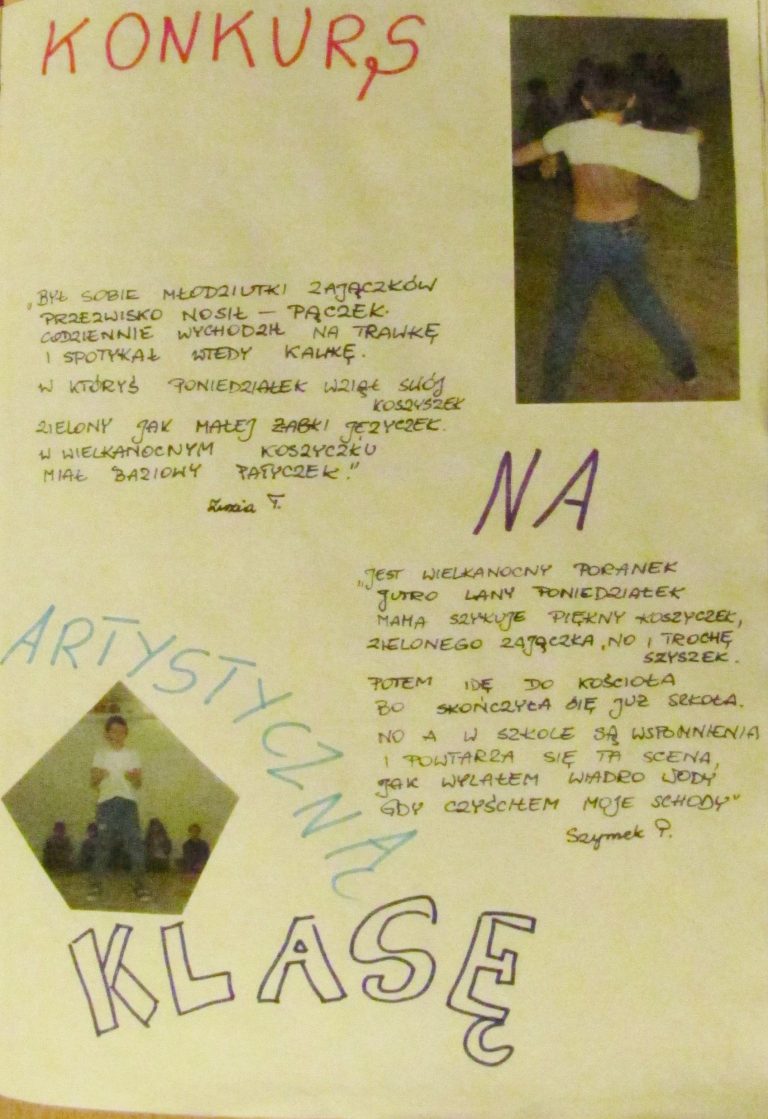 KONKURS
„BYŁ SOBIE MŁODZIUTKI ZAJĄCZKÓW
PRZEZWISKO NOSIŁ – PĄCZEK.
CODZIENNIE WYCHODZIŁ NA TRAWKĘ
I SPOTYKAŁ WTEDY KAWKĘ.
W KTÓRYŚ PONIEDZIAŁEK WZIĄŁ SWÓJ
KOSZYSZEK
ZIELONY JAK MAŁEJ ŻABKI JĘZYCZEK.
W WIELKANOCNYM KOSZYCZKU
MIAŁ BAZIOWY PATYCZEK."
Zuzia T.
NA
„JEST WIELKANOCNY PORANEK
JUTRO LANY PONIEDZIAŁEK
MAMA SZYKUJE PIĘKNY KOSZYCZEK,
ZIELONEGO ZAJĄCZKA, NO I TROCHĘ
SZYSZEK.
POTEM IDĘ DO KOŚCIOŁA
BO SKOŃCZYŁA SIĘ JUŻ SZKOŁA.
NO A W SZKOLE SĄ WSPOMNIENIA
I POWTARZA SIĘ TA SCENA,
JAK WYLAŁEM WIADRO WODY
GDY CZYŚCIŁEM MOJE SCHODY"
Szymek P.
ARTYSTYCZNĄ
KLASĘ